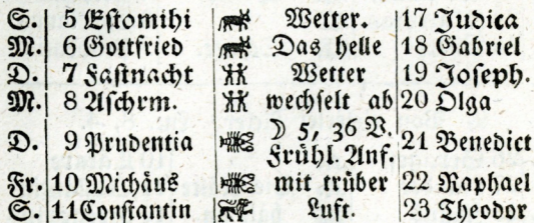 S. 5 Estomihi Wetter. 17 Judica
M. 6 Gottfried Das helle 18 Gabriel
D. 7 Fastnacht Wetter 19 Joseph.
M. 8 Aschrm. wechselt ab 20 Olga
D. 9 Prudentia ☽ 5, 36 V. Frühl. Anf. 21 Benedict
Fr. 10 Michäus mit trüber 22 Raphael
S. 11 Constantin Luft. 23 Theodor